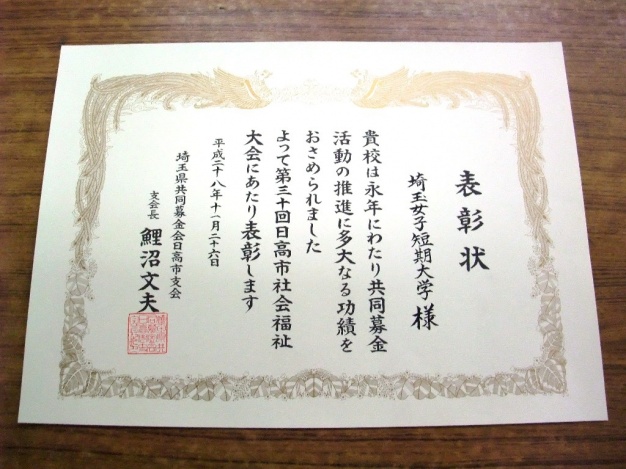 表彰状
埼玉女子短期大学 様
貴校は永年にわたり共同募金
活動の推進に多大なる功績を
おさめられました
よって第三十回日高市社会福祉
大会にあたり表彰します
平成二十八年十一月二十六日
埼玉県共同募金会日高市支会
支会長 鯉沼文夫